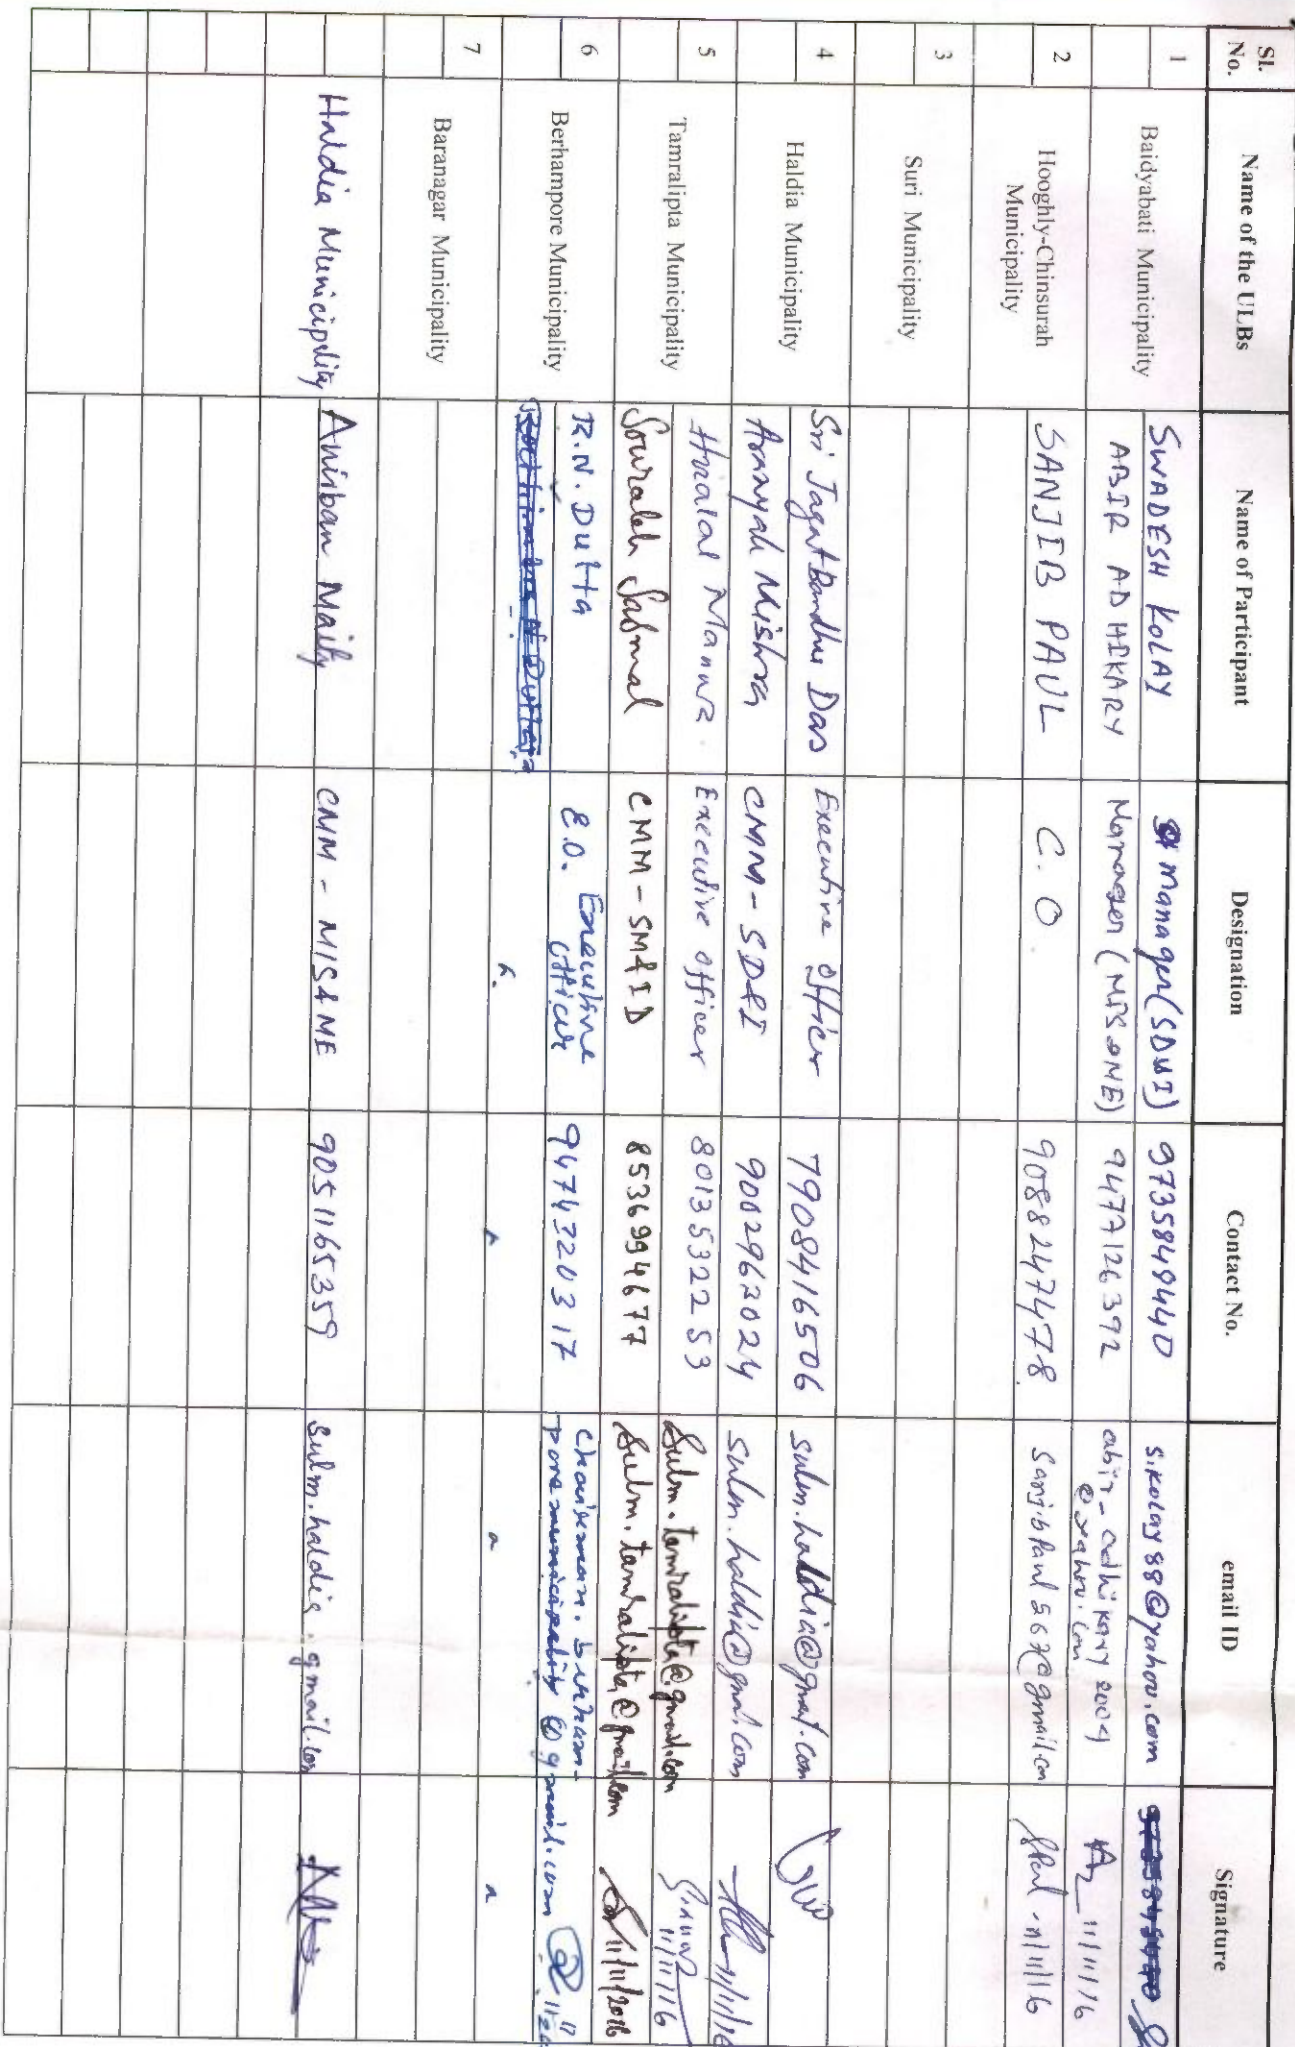 Sl. No. Name of the ULBs Name of Participant Designation Contact No. email ID Signature
1 Baidyabati Municipality SWADESH KOLAY Manager (SD&I) 9735849440 s.kolay88@yahoo.com
ABIR ADHIKARY Manager (MIS&ME) 9477126392 abir_adhikary2004@yahoo.com 11/11/16
2 Hooghly-Chinsurah Municipality SANJIB PAUL C.O 9088247478 sanjibpaul567@gmail.com 11/11/16
3 Suri Municipality
4 Haldia Municipality Sri Jagat Bandhu Das Executive Officer 7908416506 sulm.haldia@gmail.com
Aranyak Mishra CMM-SD&I 9002963024 sulm.haldia@gmail.com 11/11/16
5 Tamralipta Municipality Hiralal Manna Executive Officer 8013532253 sulm.tamralipta@gmail.com 11/11/16
Sourabh Sasmal CMM-SM&ID 8536994677 sulm.tamralipta@gmail.com 11/11/2016
6 Berhampore Municipality R.N. Dutta E.O. Executive Officer 9474320317 chairman.berhamporemunicipality@gmail.com
7 Baranagar Municipality
Haldia Municipality Anirban Maity CMM - MIS&ME 9051165359 sulm.haldia.gmail.com